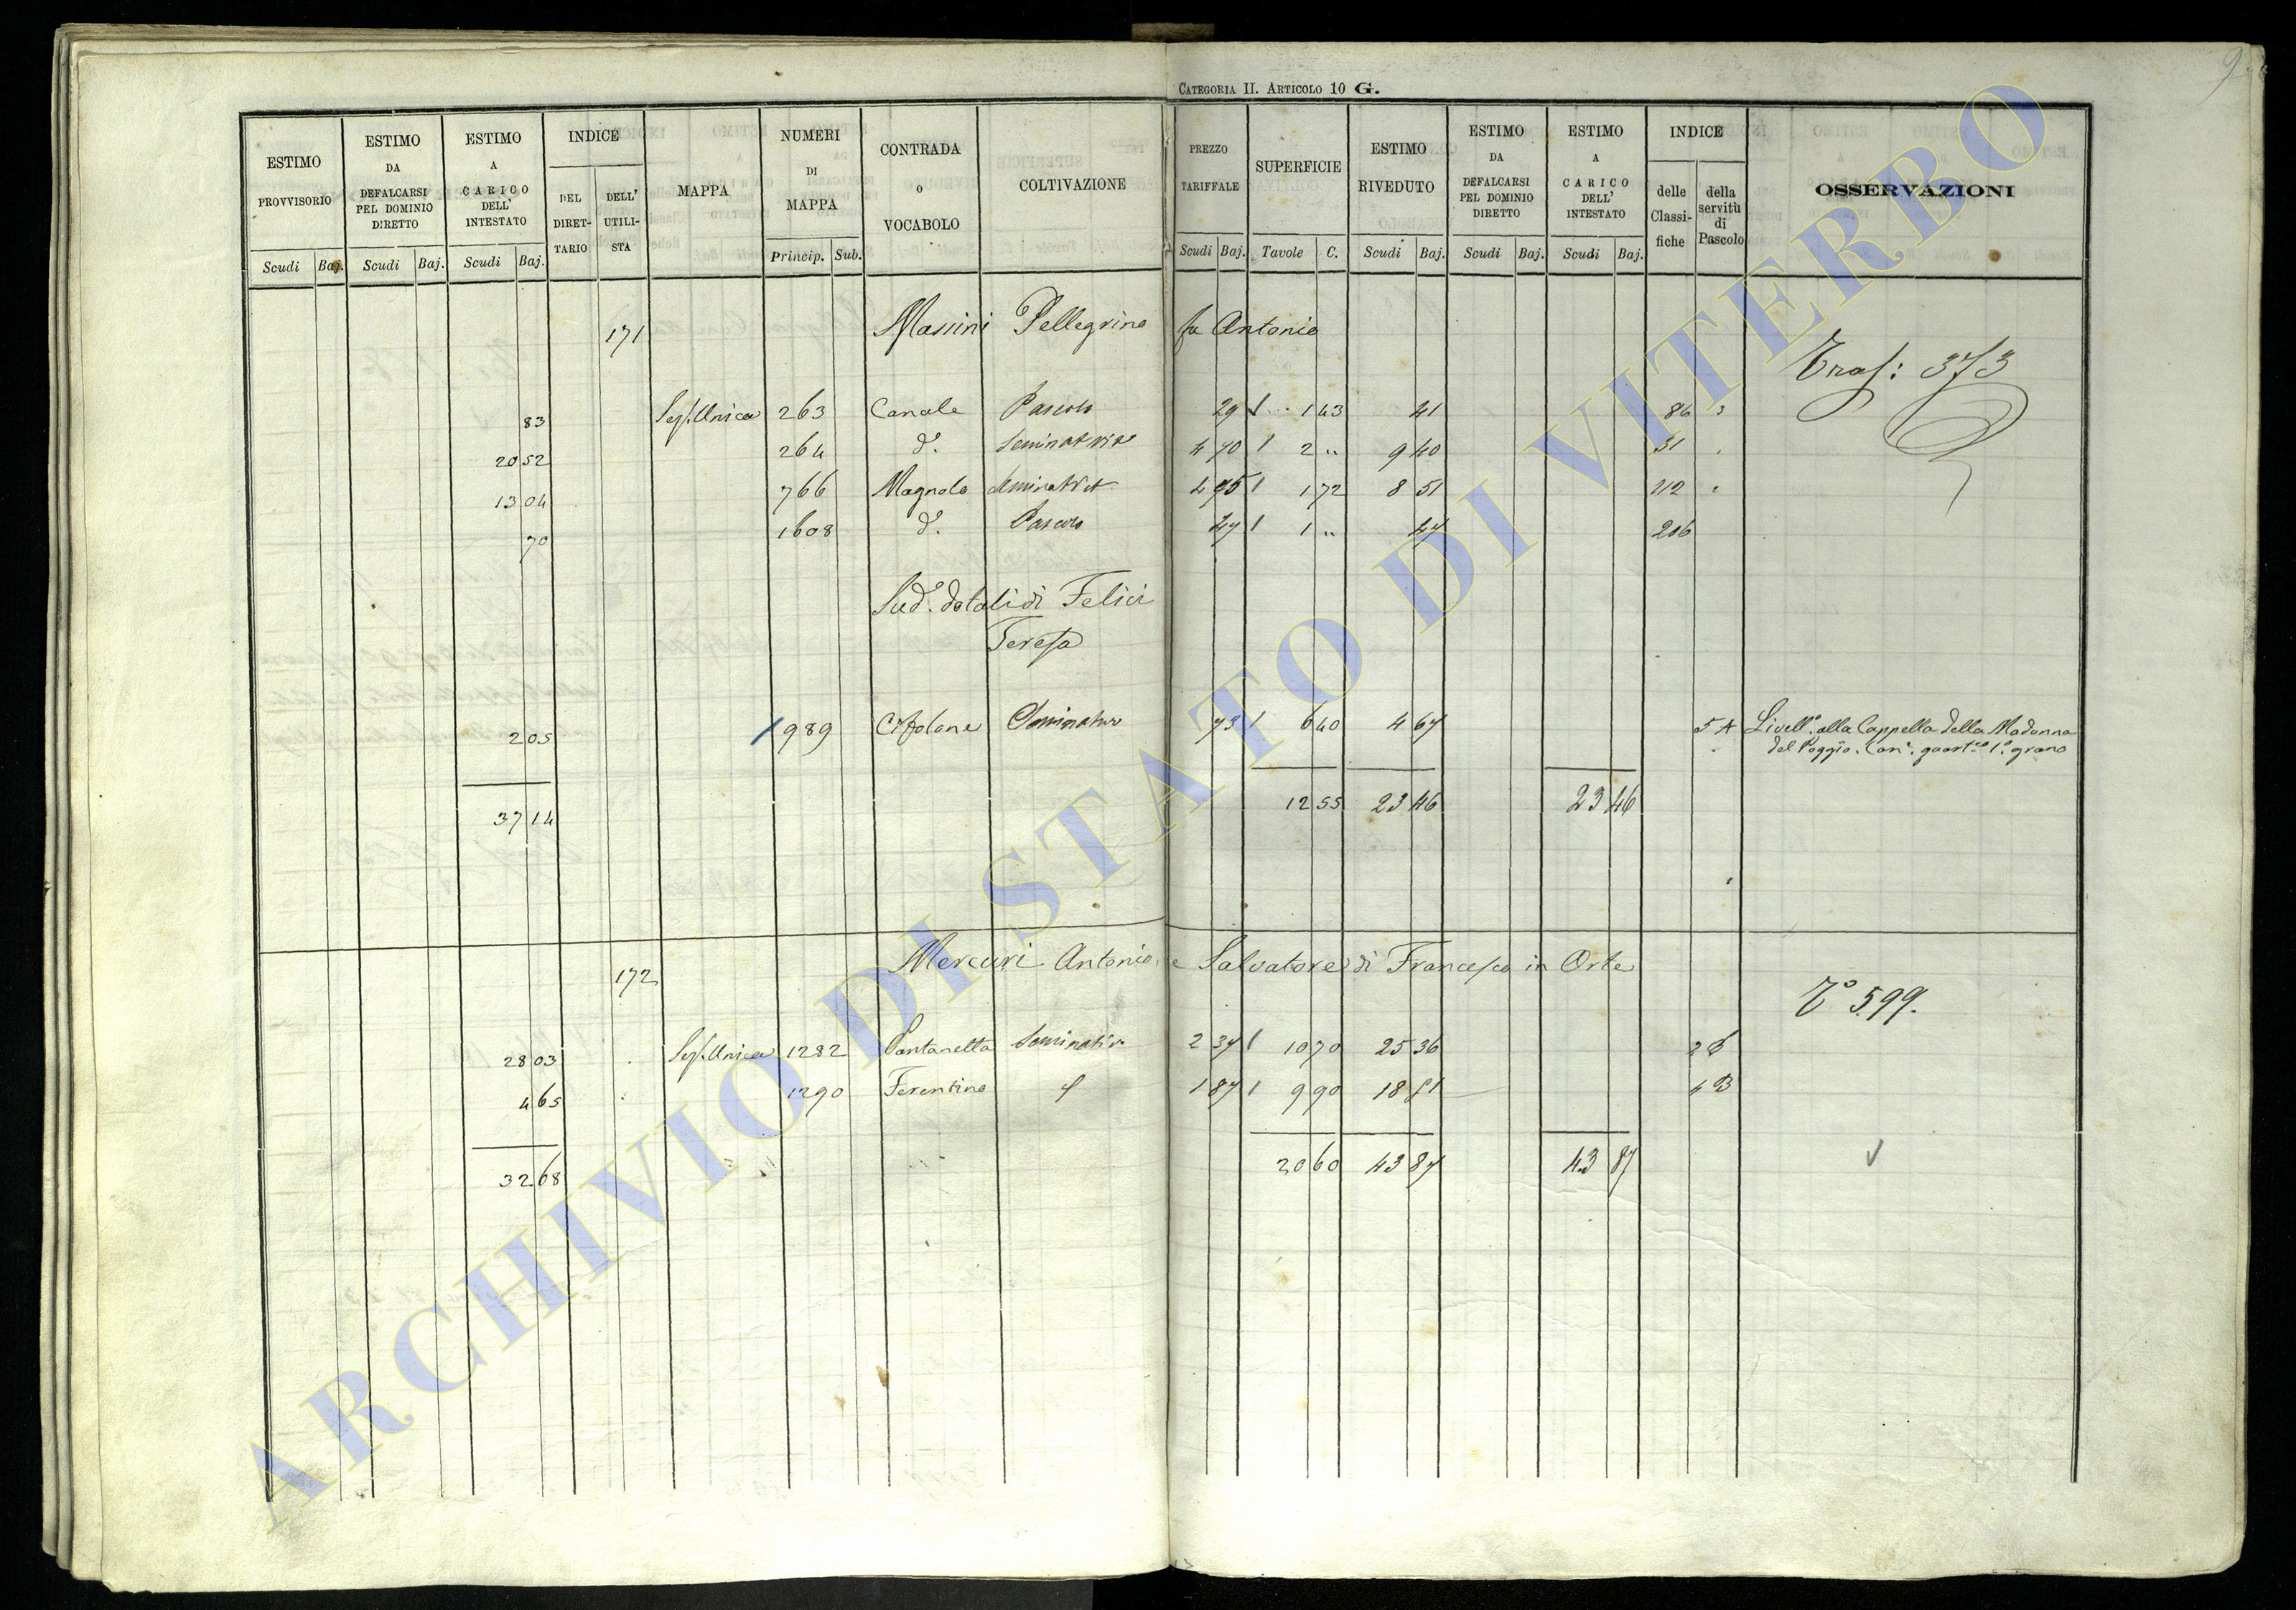 9
CATEGORIA II. ARTICOLO 10 G.
ESTIMO PROVVISORIO ESTIMO DA DEFALCARSI PEL DOMINIO DIRETTO ESTIMO A CARICO DELL' INTESTATO INDICE DEL DIRETTARIO DELL' UTILISTA MAPPA NUMERI DI MAPPA CONTRADA O VOCABOLO COLTIVAZIONE PREZZO TARIFFALE SUPERFICIE ESTIMO RIVEDUTO ESTIMO DA DEFALCARSI PEL DOMINIO DIRETTO ESTIMO A CARICO DELL' INTESTATO INDICE delle Classifiche della servitù di Pascolo OSSERVAZIONI
Scudi Baj. Scudi Baj. Scudi Baj. Princip. Sub. Scudi Baj. Tavole C. Scudi Baj. Scudi Baj. Scudi Baj.
171 Massini Pellegrino fu Antonio
Tras: 373
83 Sez. Unica 263 Canale Pascolo 29 1 43 41 86
20 52 264 d°. Seminativo 4 70 2 " 9 40 51
13 04 766 Magnolo Seminativo 4 95 1 72 8 51 112
70 1608 d°. Pascolo 47 1 " 47 206
Sud°. dotali di Felici
Teresa
2 05 989 Cifolone Seminativo 73 6 40 4 67 5 A Livell°. alla Cappella della Madonna
del Poggio. Can°. quart° 1°. grano
37 14 12 55 23 46 23 46
172 Mercuri Antonio, e Salvatore di Francesco in Orte
T° 599.
28 03 Sez. Unica 1282 Pantanella Seminativo 2 37 10 70 25 36
4 65 1290 Ferentino 1 87 9 90 18 51 4 B
32 68 20 60 43 87 43 87
ARCHIVIO DI STATO DI VITERBO